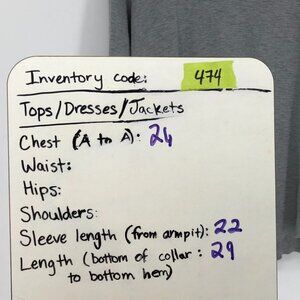 Inventory code: 474
Tops/Dresses/Jackets
Chest (A to A): 24
Waist:
Hips:
Shoulders:
Sleeve length (from armpit): 22
Length (bottom of collar : 29
to bottom hem)